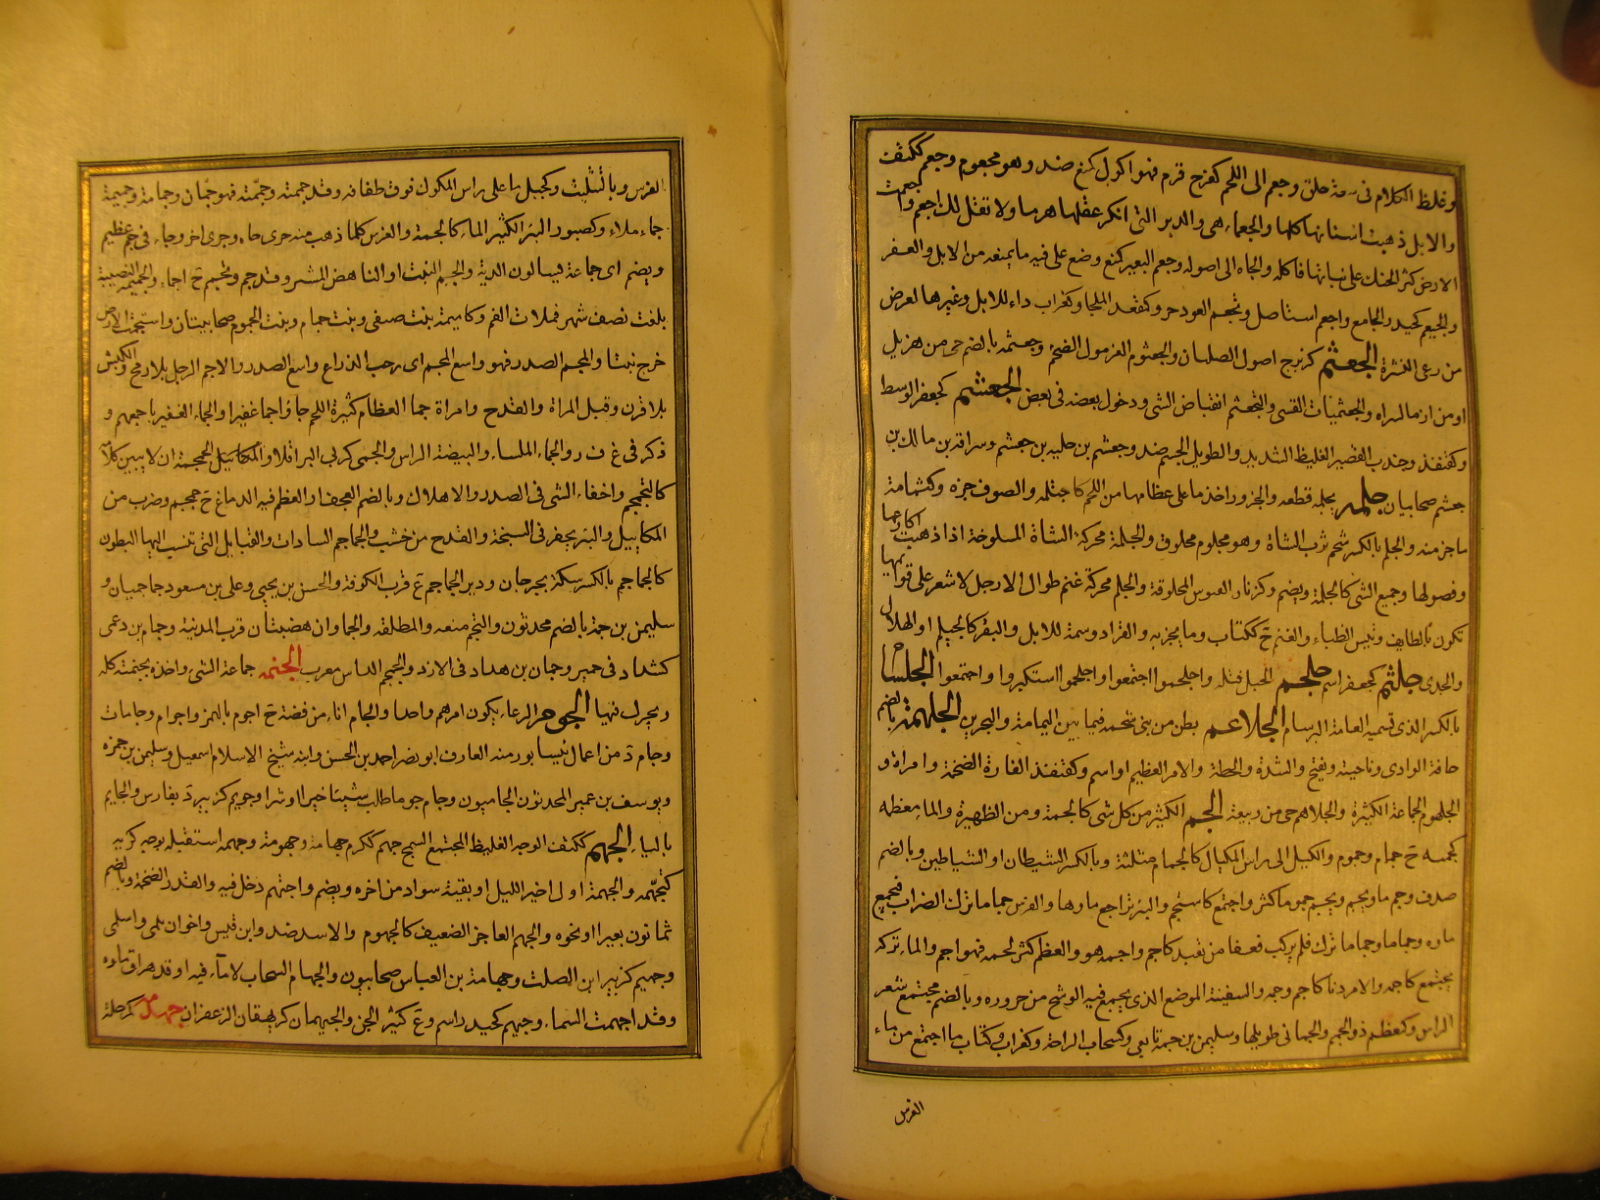 وغلظ الكلام فى سعة حلق وجعم الى اللحم كفرح قرم فهو اكول كمنع ضد وهو مجعوم وجعم ككتف
والابل ذهبت اسنانها كلها والجعماء هى والدبر التى انكر عقلها هرما ولا تقل للذكر اجعم واجعمت
الارض كثر الحنك على نباتها فاكله والجاه الى اصوله وجعم البعير كمنع وضع على فيه ما يمنعه من الاكل والعفر
والجيعم كحيدر الجامع واجعم استاصل وتجعم العود حن وكمقعد الملجا وكغراب داء للابل وغيرها لعرض
من رعى النشرة الجعثم كزبرج اصول الصليان والجعثوم الغرمول الضخم وجعثمة بالضم حى من هزيل
او من ازد السراه والجعثميات القسى والتجعثم انقباض الشى ودخول بعضه فى بعض الجعشم كجعفر الوسط
وكقنفذ وجندب القصير الغليظ الشديد والطويل الجسم ضد وجعشم بن خليبه بن جعشم وسراقة بن مالك بن
جعشم صحابيان جلمه يجلمه قطعه والجزور اخذ ما على عظامها من اللحم كاجتلمه والصوف جزه وكثمامة
ما جز منه والجلم بالكسر شحم ثرب الشاة وهو مجلوم محلوق والجلمة محركة الشاة المسلوخة اذا ذهبت اكارعها
وفصولها وجميع الشى كالجلمة ويضم وكزنار التيوس المحلوقة والجلم محركة غنم طوال الارجل لا شعر على قوائمها
تكون بالطايف وتيس الظباء والغنم ج ككتاب وما يجز به والقراد وسمة للابل والبقر كالجيلم او الهلال
والجدى جلثم كجعفر اسم جلحم الحبل فتله واجلحموا اجتمعوا واجلخموا استكبروا واجتمعوا الجلسام
بالكسر الذى تسميه العامة البرسام الجلاعم بطن من بنى سحمه فيما بين اليمامة والبحرين الجلهمة بالضم
حافة الوادى وناحيته ويفتح والشدة والخطة والامر العظيم او اسم وكقنفذ الفارة الضخمة وامراة و
الجلهوم الجماعة الكثيرة والجلاهم حى من ربيعة الجم الكثير من كل شى كالجمة ومن الظهيرة والماء معظمه
كجمته ج جمام وجموم والكيل الى راس المكيال كالجمام مثلثة وبالكسر الشيطان او الشياطين وبالضم
صدف وجم ماؤه يجم ويجم جموما كثر واجتمع كاستجم والبئر تراجع ماؤها والفرس جماما ترك الضراب فتجمع
ماؤه وجما وجماما ترك فلم يركب فعفا من تعبه كاجم واجمه هو والعظم كثر لحمه فهو اجم والماء تركه
يجتمع كاجمه والامر دنا كاجم وجمة السفينة الموضع الذى يجتمع فيه الرشح من خروزه وبالضم مجتمع شعر
الراس وكمعظم ذو الجمة والجمانى طويلها وسليمن بن جمة تابعى وكسحاب الراحة وكغراب وكتاب ما اجتمع من ماء
الفرس
الفرس وبالتثليث وكجبل ما على راس المكوك فوق طفافه وقد جممته وجمّمته فهو جمّان وجمامة وجميمة
جاء ملاء وكصبور البئر الكثير الماء كالجمة والفرس كلما ذهب منه جرى جاءه جرى اخر وجاء فى جم عظيم
ويضم اى جماعة يسالون الدية والجميم النبت او الناهض المنتشر وقد جمم وتجمم ج اجماء والجميمة النصية
بلغت نصف شهر فملات الفم وكاميمة بنت صيفى وبنت حمام وبنت الجموم صحابيتان واستجمت الارض
خرج نبتها والمجم الصدر فهو واسع المجم اى رحب الذراع واسع الصدر والاجم الرجل بلا رمح والكبش
بلا قرن وقبل المراة والقدح وامراة جما العظام كثيرة اللحم جاؤا جما غفيرا والجماء الغفير باجمعهم و
ذكر فى غ ف ر والجماء الملساء والبيضة الراس والجمى كربى الباقلا والمكاييل الجمجمة ان لا يبين كلامه
كالتجمجم واخفاء الشى فى الصدر والاهلاك وبالضم القحف او العظم فيه الدماغ ج جمجم وضرب من
المكاييل والبئر تحفر فى السبخة والقدح من خشب والجماجم السادات والقبايل التى تنسب اليها البطون
كالجماجم بالكسر سكة بجرجان ودير الجماجم ع قرب الكوفة والحسن بن يحيى وعلى بن مسعود جماجميان و
سليمن بن جمة بالضم محدثون والتجم متعة المطلقة والجماوان هضبتان قرب المدينة وجمام بن دعمى
كشداد فى حمير وجمان بن هداد فى الازد والجمجم المداس معرب الجنمة جماعة الشى واخذه بجنمته كله
ويحرك فيها الجوم الرعاء يكون امرهم واحدا والجام اناء من فضة ج اجوم بالهمز واجوام وجامات
وجام ة من اعمال نيسابور منه العارف ابو نصر احمد بن الحسن وابنه شيخ الاسلام اسمعيل وسليمن بن حمزة
ويوسف بن عمير المحدثون الجاميون وجام جوما طلب شيئا خيرا او شرا وجويم كزبير د بفارس والجايم
بالياء الجهم ككتف الوجه الغليظ المجتمع السمج جهم ككرم جهامة وجهومة وجهمه استقبله بوجه كريه
كتجهّمه والجهمة اول اخير الليل او بقية سواد من اخره ويضم واجتهم دخل فيه والقدر الضخمة وبالضم
ثمانون بعيرا او نحوه والجهم العاجز الضعيف كالجهوم والاسد ضد وابن قيس واخوان بلى واسلمى
وجهيم كزبير ابن الصلت وجهامة بن العباس صحابيون والجهام السحاب لا ماء فيه او قد هراق ماءه
وقد اجهمت السماء وجيهم كحيدر اسم وع كثير الجن والجيهمان كريهقان الزعفران جهرمة كمرحلة